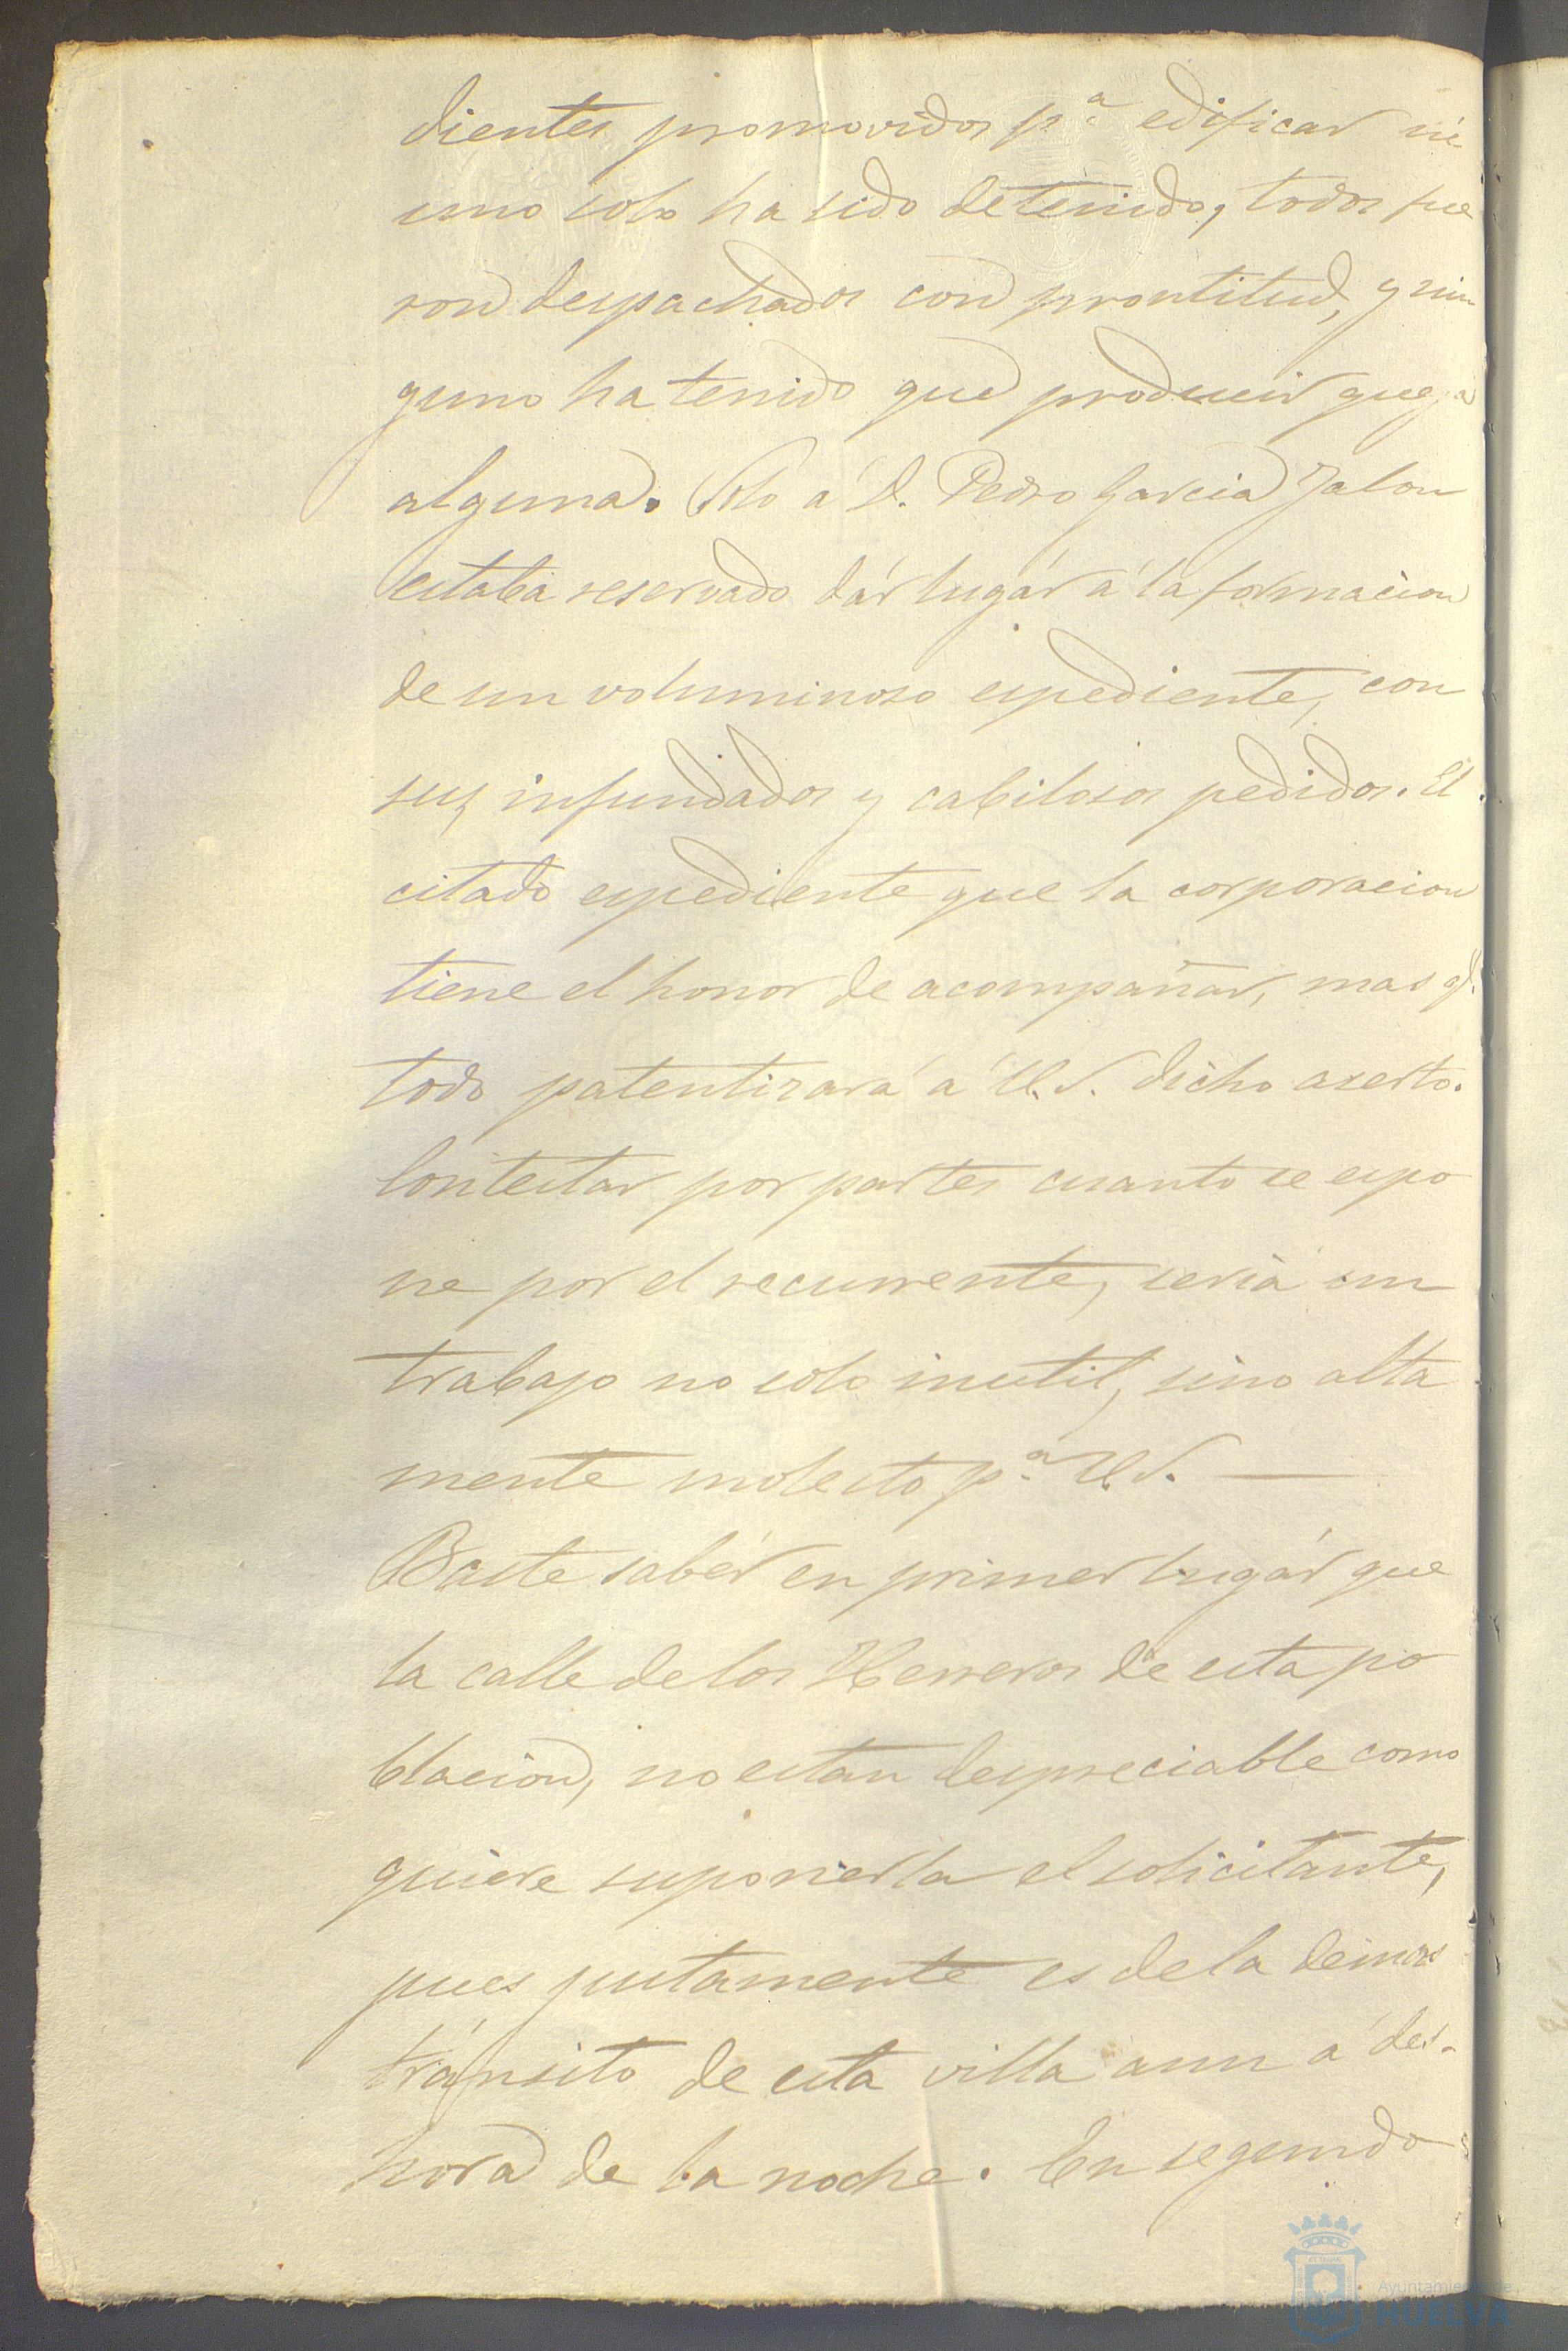 dientes promovidos p.ª edificar ni
uno solo ha sido detenido, todos fue
ron despachados con prontitud, y nin
guno ha tenido que producir queja
alguna. Solo á D. Pedro Garcia Jalon
estaba reservado dár lugár á la formacion
de un voluminoso espediente, con
sus infundados y cabilosos pedidos. El
citado espediente que la corporacion
tiene el honor de acompañar, mas q.
todo patentizará á U.S. dicho aserto.
Contestar por partes cuanto se espo
ne por el recurrente, seria un
trabajo no solo inutil, sino alta
mente molesto p.ª U.S. —
Baste sabér en primer lugár que
la calle de los Herreros de esta po
blacion, no es tan despreciable como
quiere suponerla el solicitante,
pues justamente es de la de mas
tránsito de esta villa aun á des-
hora de la noche. En segundo
Ayuntamiento de
HUELVA